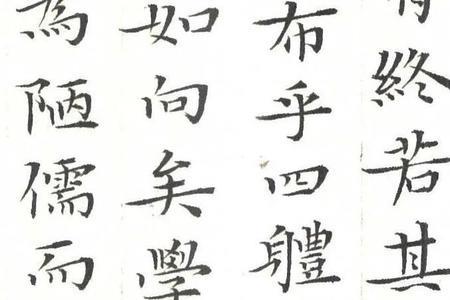 有終若其
布乎四體
如向矣學
為陋儒而